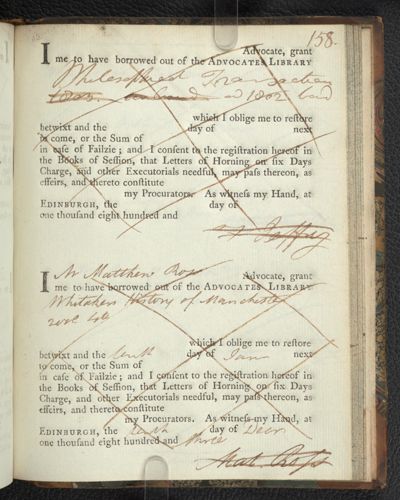 158.
I Advocate, grant
me to have borrowed out of the ADVOCATES LIBRARY
Philosophical Transactions
ad 1802
which I oblige me to reſtore
betwixt and the day of next
to come, or the Sum of
in caſe of Failzie; and I conſent to the regiſtration hereof in
the Books of Seſſion, that Letters of Horning on ſix Days
Charge, and other Executorials needful, may paſs thereon, as
effeirs, and thereto conſtitute
my Procurators. As witneſs my Hand, at
EDINBURGH, the day of
one thouſand eight hundred and
Jeffrey
I Mr Matthew Ross Advocate, grant
me to have borrowed out of the ADVOCATES LIBRARY
Whitakers History of Manchester
2 vol 4to
which I oblige me to reſtore
betwixt and the tenth day of Janr next
to come, or the Sum of
in caſe of Failzie; and I conſent to the regiſtration hereof in
the Books of Seſſion, that Letters of Horning on ſix Days
Charge, and other Executorials needful, may paſs thereon, as
effeirs, and thereto conſtitute
my Procurators. As witneſs my Hand, at
EDINBURGH, the tenth day of Decr
one thouſand eight hundred and three
Mat. Ross